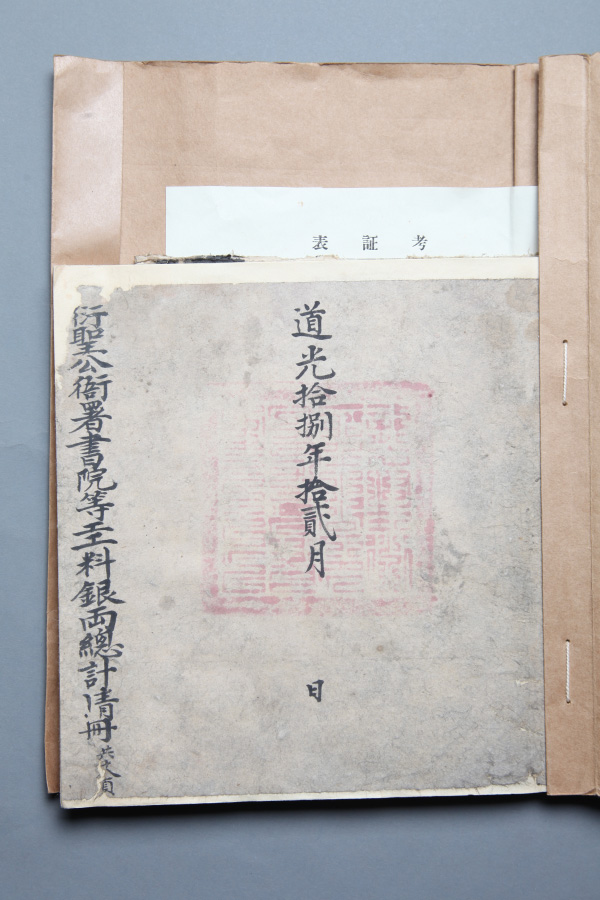 表証考
道光拾捌年拾貳月 日
衍聖公衙署書院等工料銀両總計清冊